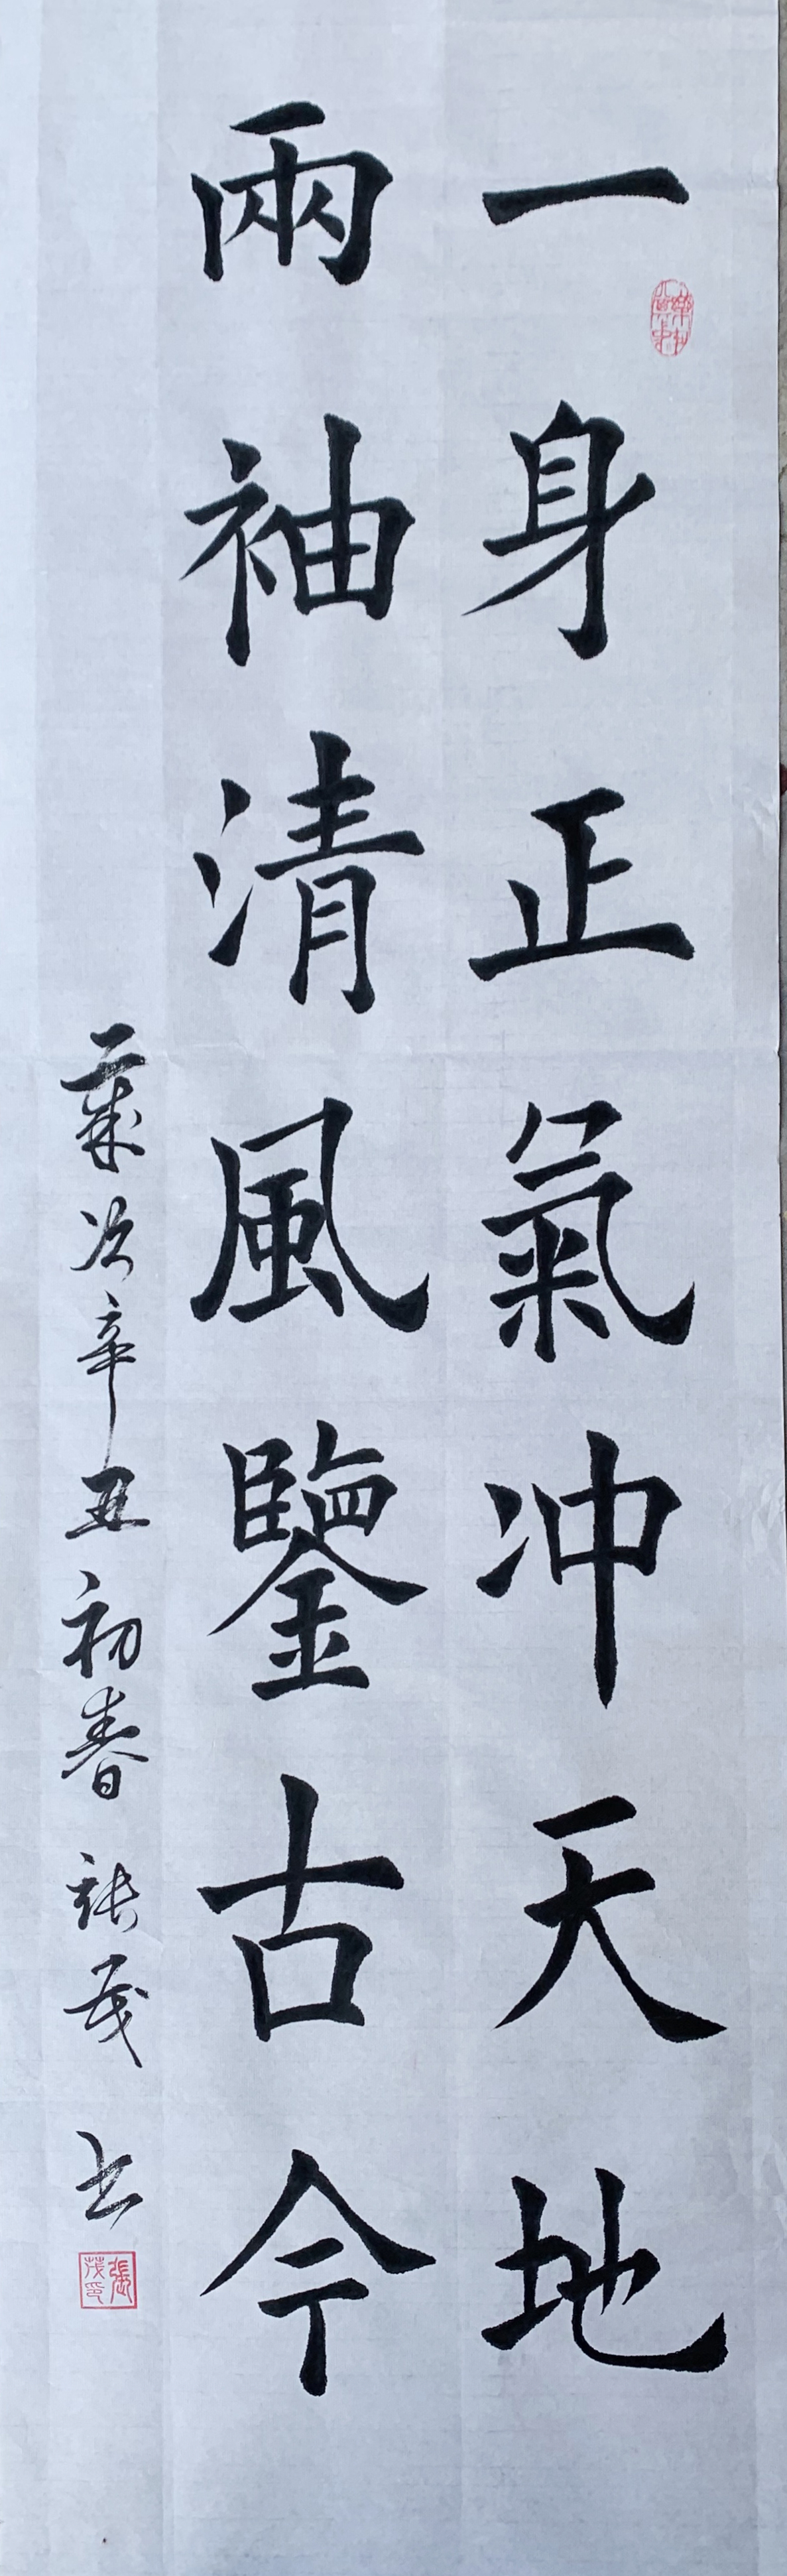 一身正氣冲天地
兩袖清風鑒古今
歲次辛丑初春 張茂 书
張茂印